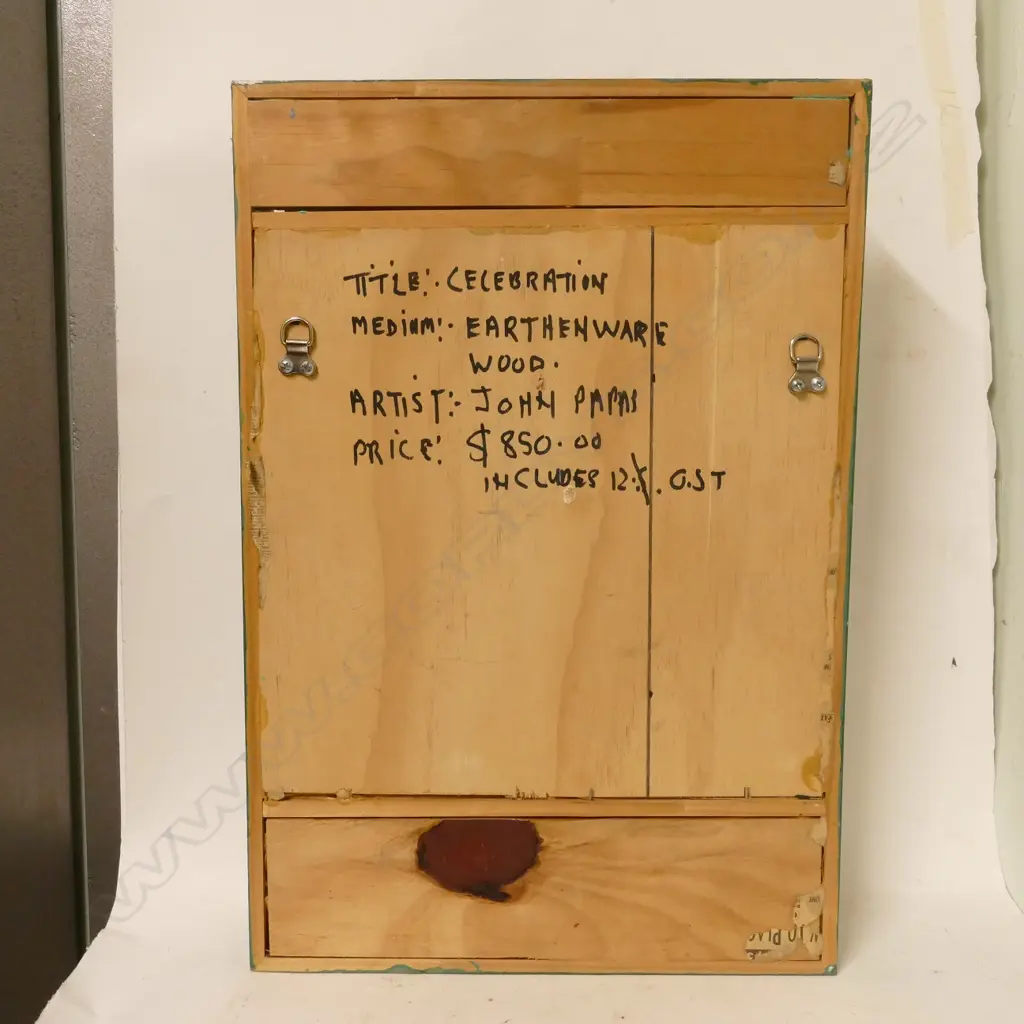 TITLE:. CELEBRATION
MEDIUM:. EARTHENWARE
WOOD.
ARTIST:. JOHN PAPAS
PRICE: $850.00
INCLUDES 12.5%. G.S.T